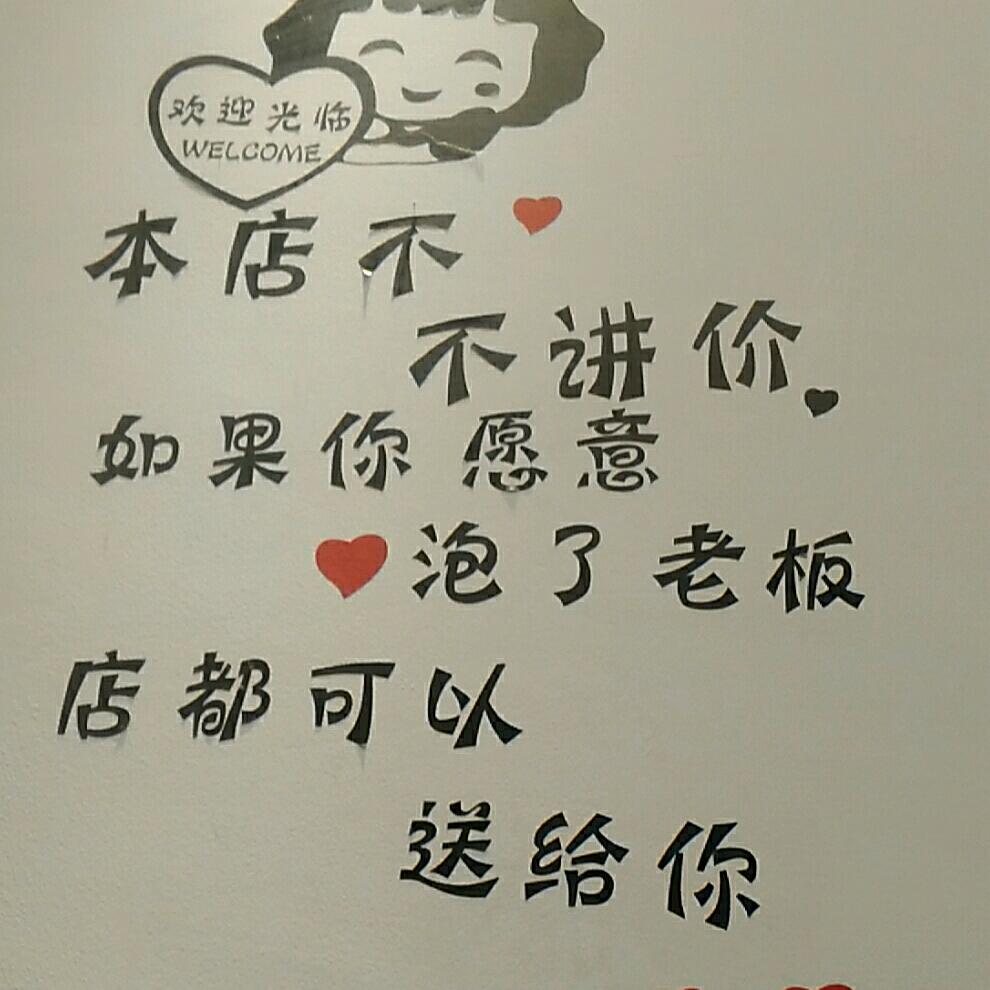 欢迎光临
WELCOME
本店不
不讲价
如果你愿意
泡了老板
店都可以
送给你